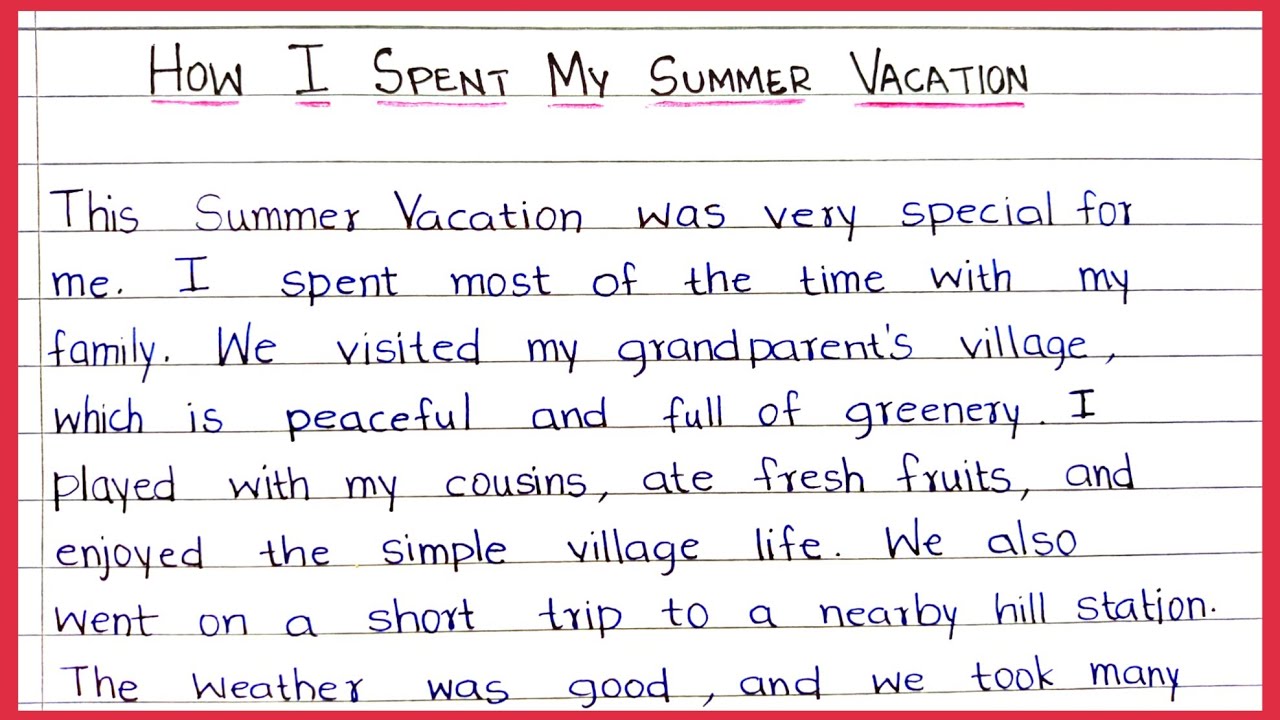 HOW I SPENT MY SUMMER VACATION
This Summer Vacation was very special for
me. I spent most of the time with my
family. We visited my grandparent's village,
which is peaceful and full of greenery. I
played with my cousins, ate fresh fruits, and
enjoyed the simple village life. We also
went on a short trip to a nearby hill station.
The Weather was good, and we took many